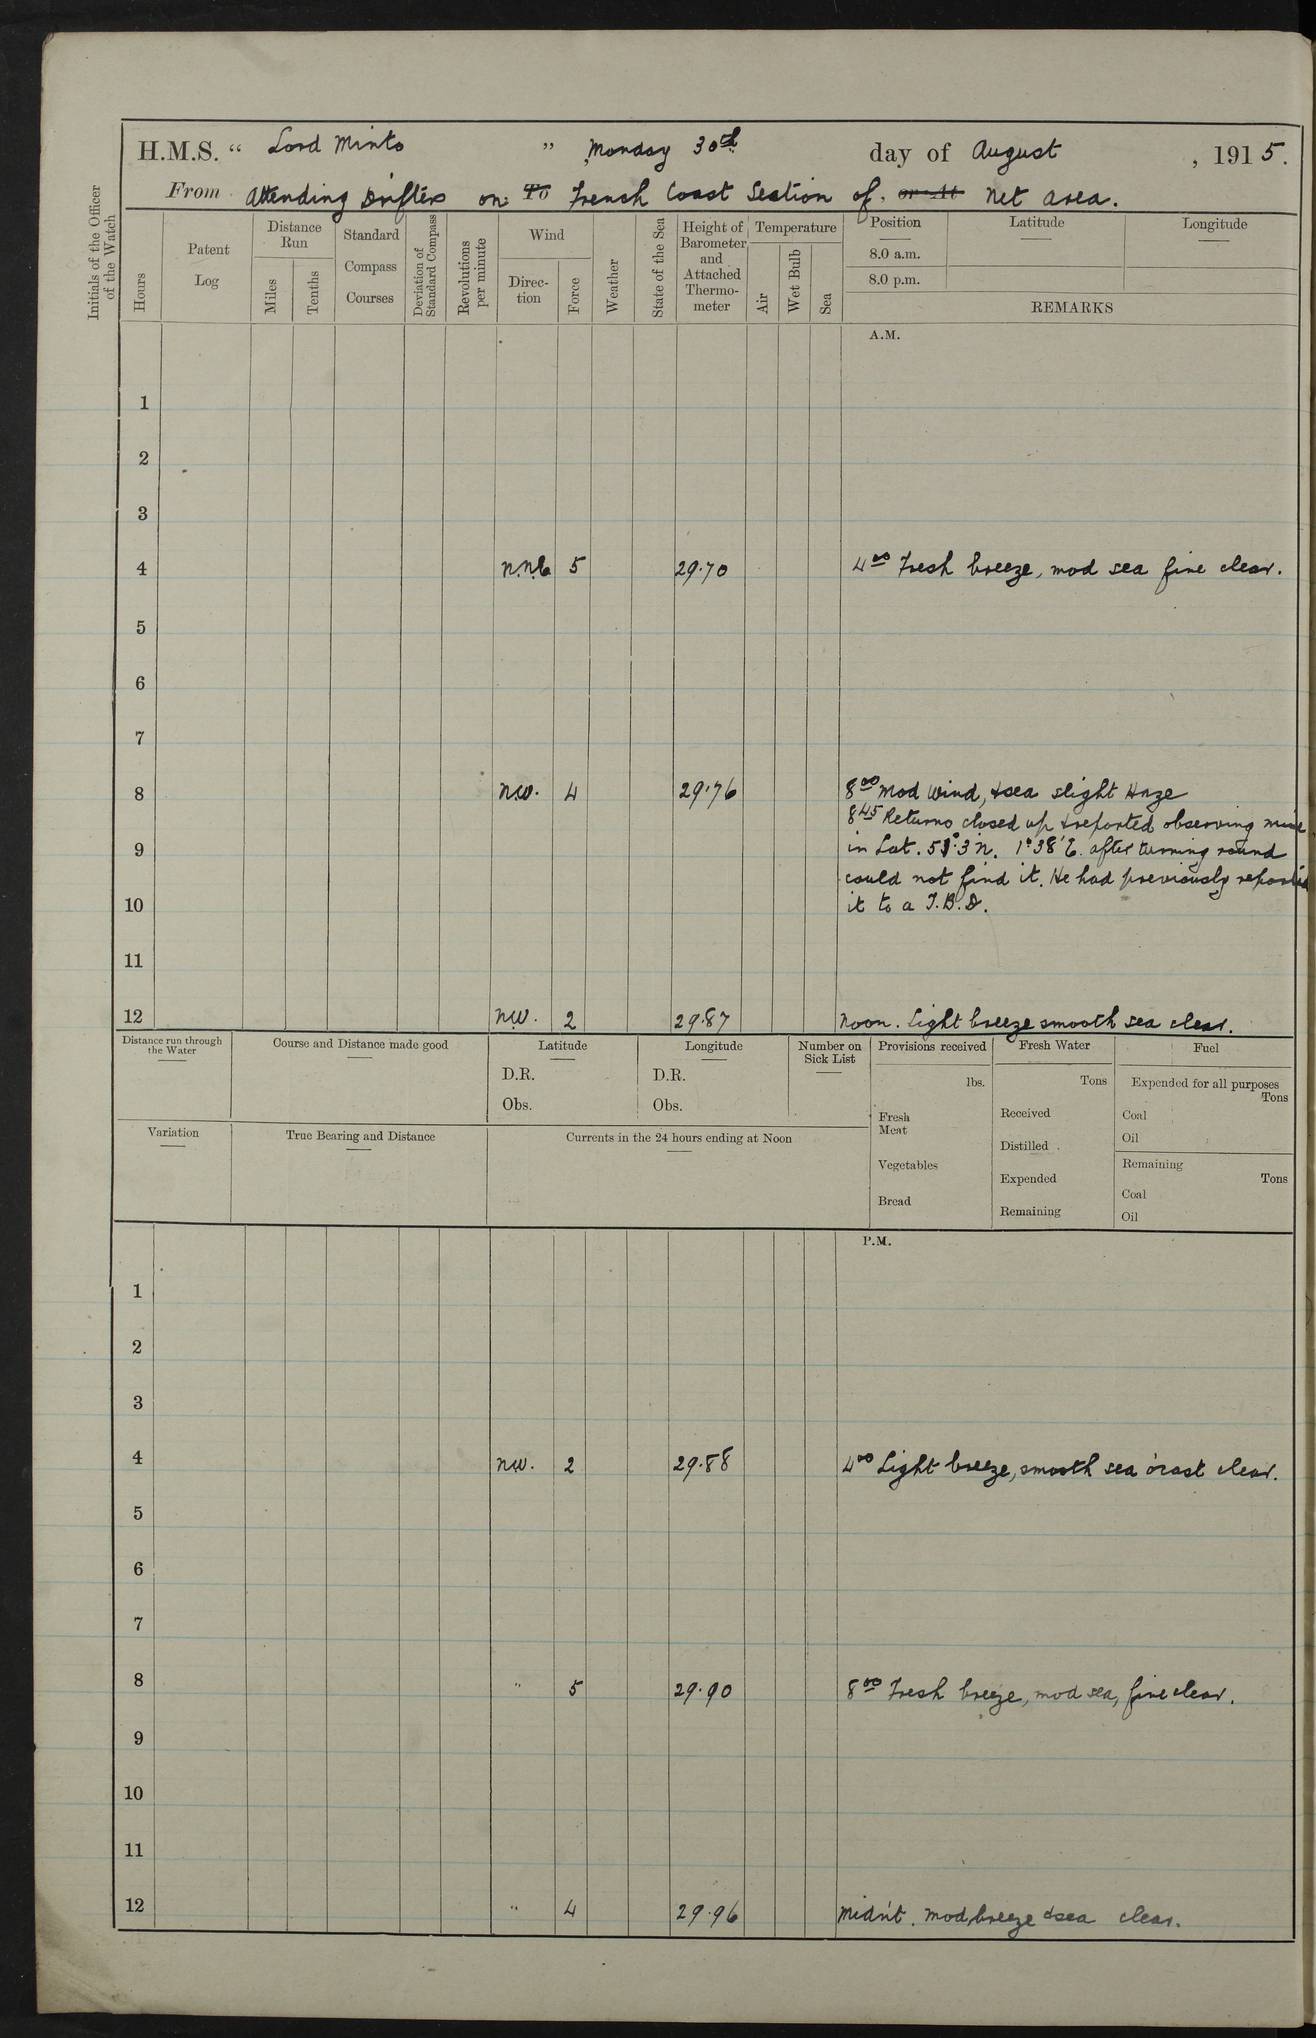 H.M.S. “ Lord Minto ” Monday 30th day of August , 1915.
From Attending Drifters on To French Coast Section of or At Net Area.
Initials of the Officer of the Watch
Hours
Patent Log
Distance Run
Miles
Tenths
Standard Compass Courses
Deviation of Standard Compass
Revolutions per minute
Wind
Direction
Force
Weather
State of the Sea
Height of Barometer and Attached Thermometer
Temperature
Air
Wet Bulb
Sea
Position
Latitude
Longitude
8.0 a.m.
8.0 p.m.
REMARKS
A.M.
1
2
3
4 N.N.E 5 29.70 4.00 Fresh breeze, mod sea fine clear.
5
6
7
8 N.W. 4 29.76 8.00 Mod wind, & sea slight Haze
8.45 Returno closed up & reported observing mine
9 in Lat. 51°.3 N. 1°38' E. after turning round
could not find it. He had previously reported
10 it to a T.B.D.
11
12 N.W. 2 29.87 Noon. Light breeze smooth sea clear.
Distance run through the Water
Course and Distance made good
Latitude
D.R.
Obs.
Longitude
D.R.
Obs.
Number on Sick List
Provisions received
lbs.
Fresh Meat
Vegetables
Bread
Fresh Water
Tons
Received
Distilled
Expended
Remaining
Fuel
Expended for all purposes
Tons
Coal
Oil
Remaining
Tons
Coal
Oil
Variation
True Bearing and Distance
Currents in the 24 hours ending at Noon
P.M.
1
2
3
4 N.W. 2 29.88 4.00 Light breeze, smooth sea o'cast clear.
5
6
7
8 " 5 29.90 8.00 Fresh breeze, mod sea, fine clear.
9
10
11
12 " 4 29.96 Midn't. Mod, breeze & sea clear.